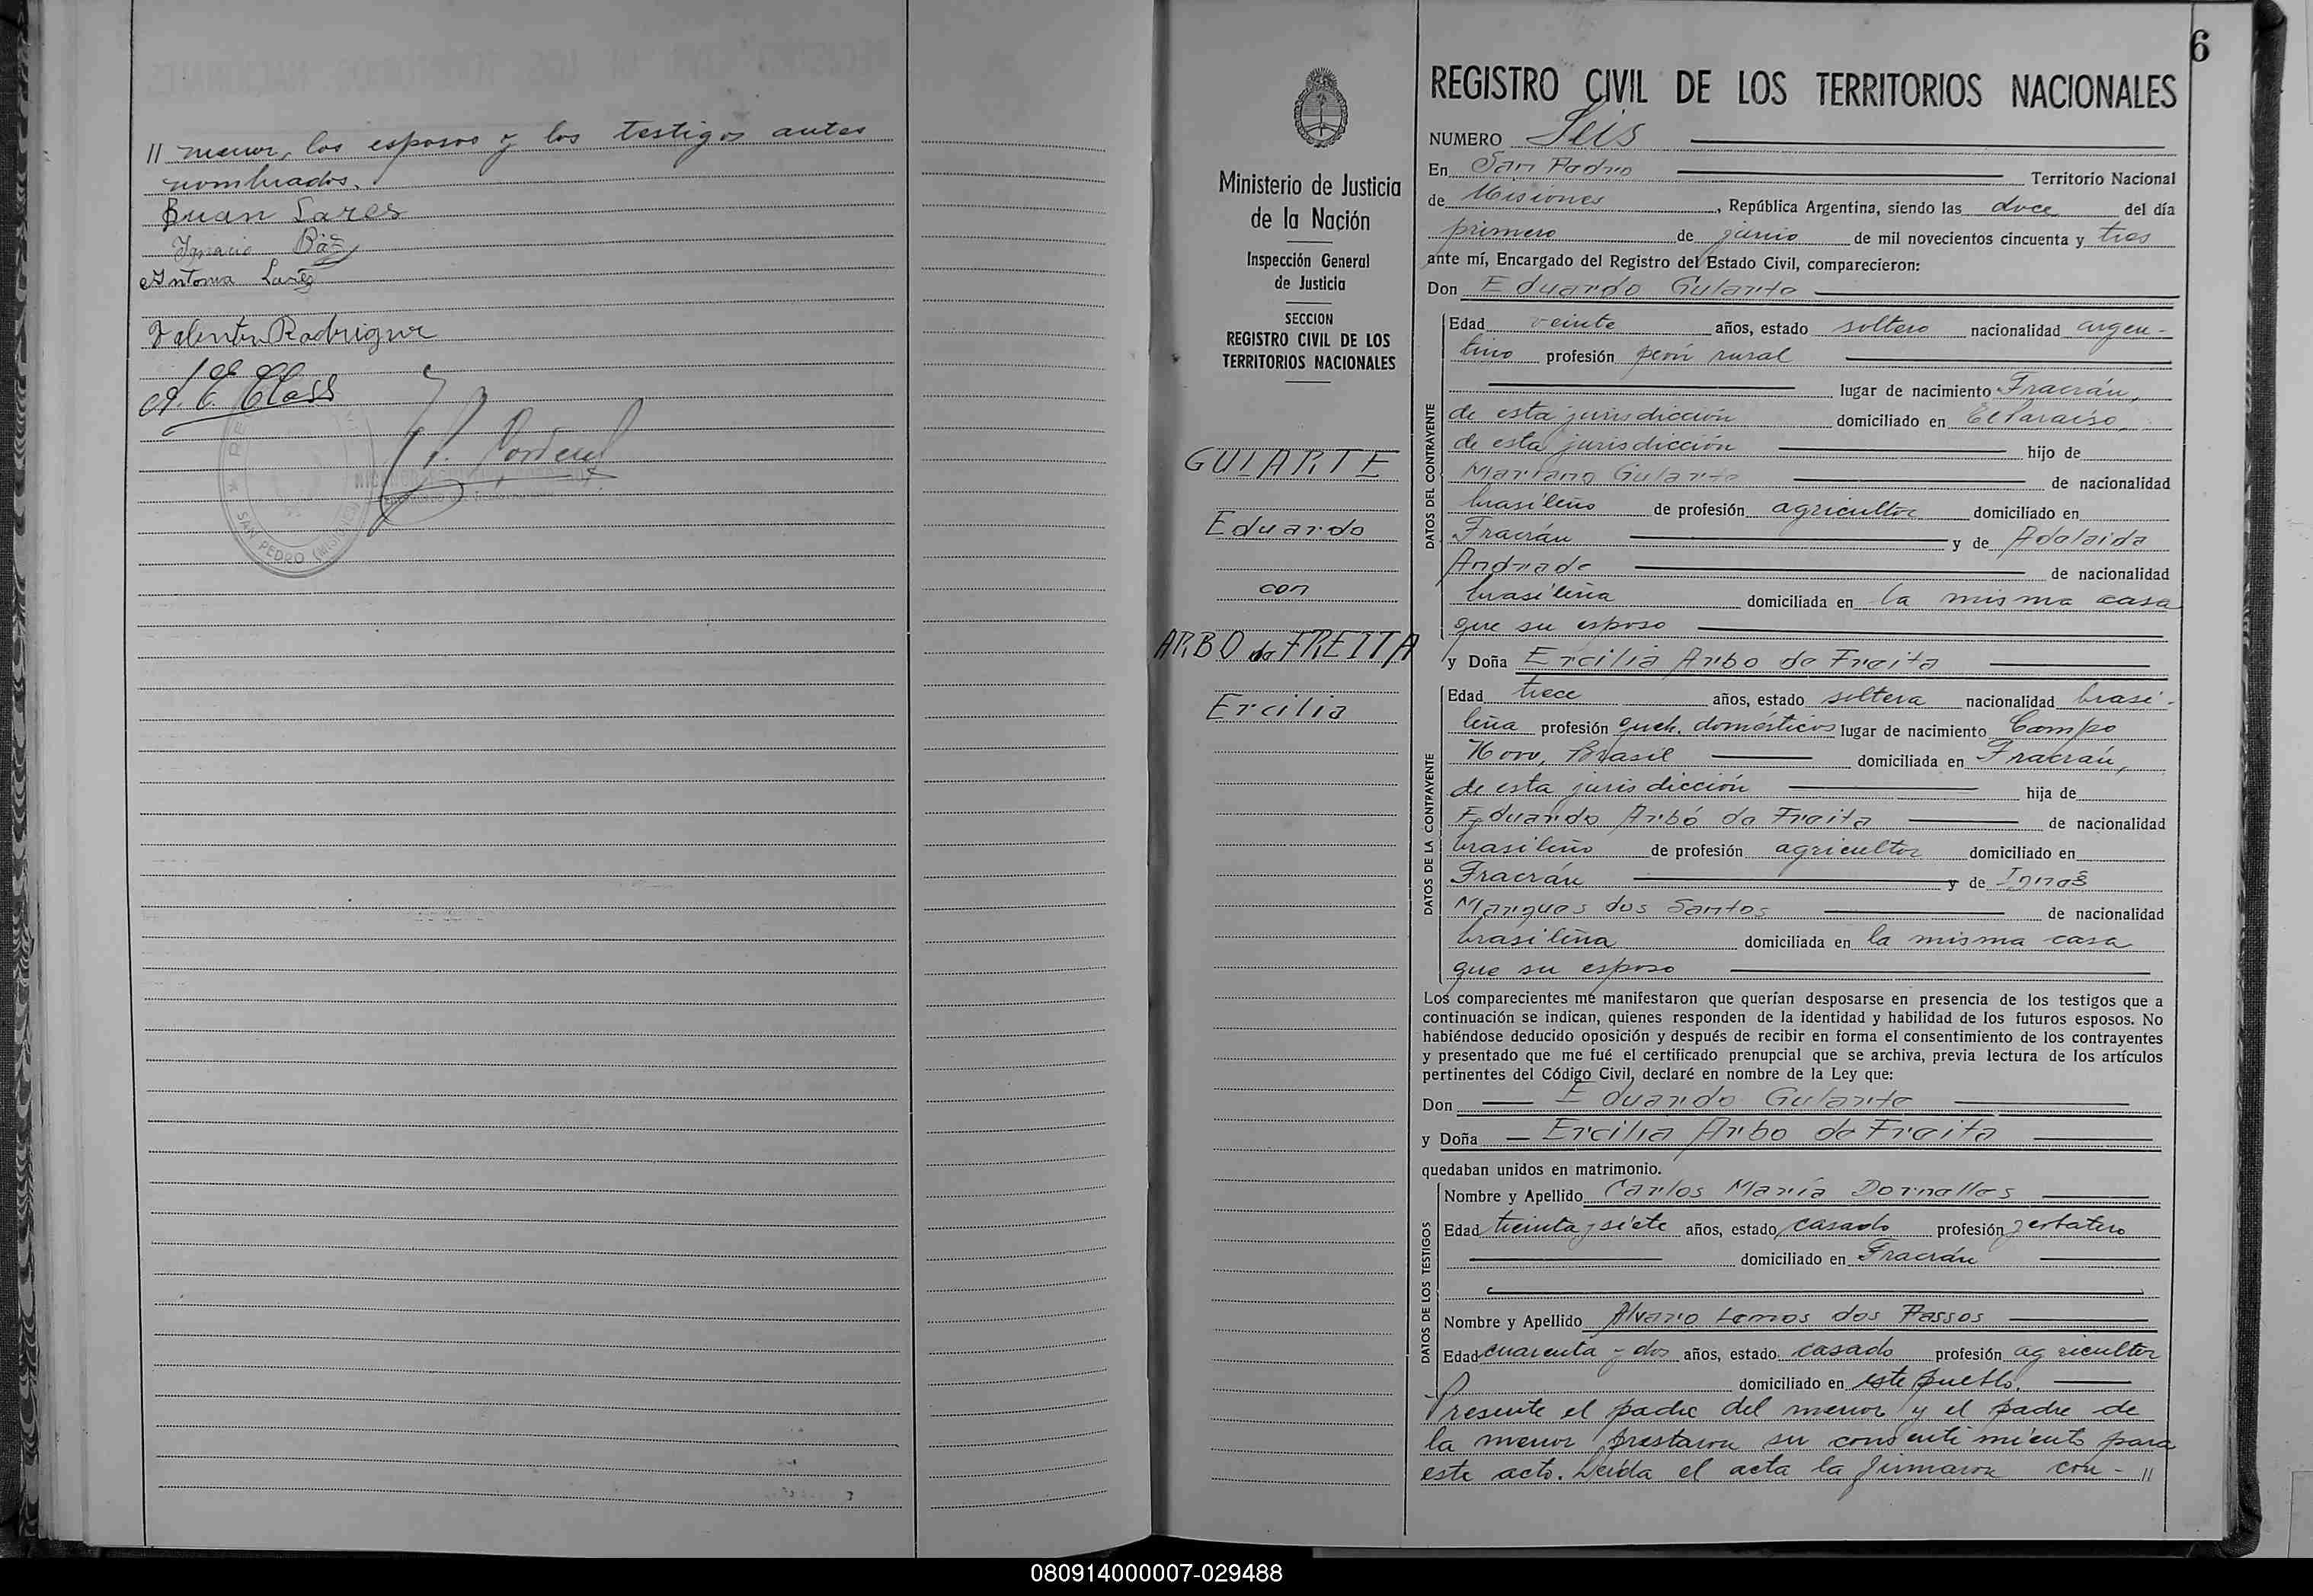 // menor, los esposos y los testigos antes
nombrados.
Juan Lares
Ignacio Báz
Antonia
Valentin Rodriguez
SAN PEDRO (MISIONES)
6
Ministerio de Justicia
de la Nación
Inspección General
de Justicia
SECCION
REGISTRO CIVIL DE LOS
TERRITORIOS NACIONALES
GULARTE
Eduardo
con
ARBO de FREITA
Ercilia
REGISTRO CIVIL DE LOS TERRITORIOS NACIONALES
NUMERO Seis
En San Pedro Territorio Nacional
de Misiones, República Argentina, siendo las doce del día
primero de junio de mil novecientos cincuenta y tres
ante mí, Encargado del Registro del Estado Civil, comparecieron:
Don Eduardo Gularte
DATOS DEL CONTRAYENTE
Edad veinte años, estado soltero nacionalidad argen-
tino profesión peón rural
lugar de nacimiento Fracrán,
de esta jurisdicción domiciliado en El Paraiso,
de esta jurisdicción hijo de
Mariano Gularte de nacionalidad
brasileño de profesión agricultor domiciliado en
Fracrán y de Adelaida
Andrade de nacionalidad
brasileña domiciliada en la misma casa
que su esposo
y Doña Ercilia Arbo de Freita
DATOS DE LA CONTRAYENTE
Edad trece años, estado soltera nacionalidad brasi-
leña profesión queh. domésticos lugar de nacimiento Campo
Novo, Brasil domiciliada en Fracrán,
de esta jurisdicción hija de
Eduardo Arbó de Freita de nacionalidad
brasileño de profesión agricultor domiciliado en
Fracrán y de Ignes
Marques dos Santos de nacionalidad
brasileña domiciliada en la misma casa
que su esposo
Los comparecientes me manifestaron que querían desposarse en presencia de los testigos que a
continuación se indican, quienes responden de la identidad y habilidad de los futuros esposos. No
habiéndose deducido oposición y después de recibir en forma el consentimiento de los contrayentes
y presentado que me fué el certificado prenupcial que se archiva, previa lectura de los artículos
pertinentes del Código Civil, declaré en nombre de la Ley que:
Don Eduardo Gularte
y Doña Ercilia Arbo de Freita
quedaban unidos en matrimonio.
DATOS DE LOS TESTIGOS
Nombre y Apellido Carlos María Dornelles
Edad treinta y siete años, estado casado profesión yerbatero
domiciliado en Fracrán
Nombre y Apellido Alvaro Lemos dos Passos
Edad cuarenta y dos años, estado casado profesión agricultor
domiciliado en este pueblo.
Presente el padre del menor y el padre de
la menor prestaron su consentimiento para
este acto. Leída el acta la firmaron con- //
080914000007-029488